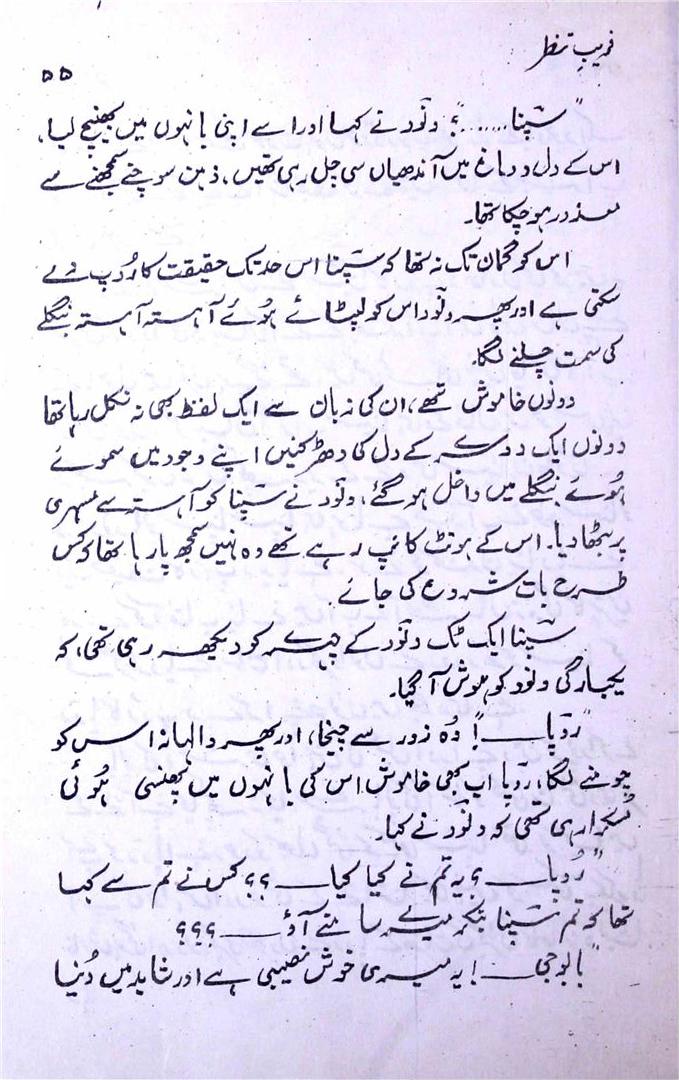 فریبِ نظر
۵۵
"سَپنا......."؟ ونَود نے کہا اور اسے اپنی بانہوں میں بھینچ لیا،
اس کے دل و دماغ میں آندھیاں سی چل رہی تھیں، ذہن سوچنے سمجھنے سے
معذور ہو چکا تھا۔
اس کو گمان تک نہ تھا کہ سَپنا اس حد تک حقیقت کا رُوپ دے
سکتی ہے اور پھر ونَود اس کو لپٹائے ہوُئے آہستہ آہستہ بنگلے
کی سمت چلنے لگا۔
دونوں خاموش تھے، ان کی زبان سے ایک لفظ بھی نہ نکل رہا تھا
دونوں ایک دوسرے کے دل کی دھڑکنیں اپنے وجود میں سموئے
ہُوئے بنگلے میں داخل ہو گئے، ونَود نے سَپنا کو آہستہ سے مسہری
پر بٹھا دیا۔ اس کے ہونٹ کانپ رہے تھے وہ نہیں سمجھ پا رہا تھا کہ کس
طرح بات شروع کی جائے۔
سَپنا ایک ٹک ونَود کے چہرے کو دیکھ رہی تھی، کہ
یکبارگی ونود کو ہوش آ گیا۔
"رَوپا ــــ"! وُہ زور سے چیخا، اور پھر والہانہ اس کو
چومنے لگا، رَوپا اب بھی خاموش اس کی بانہوں میں پھنسی ہُوئی
مُسکرا رہی تھی کہ ونَود نے کہا۔
"رُوپا ــــ؟ یہ تم نے کیا کیا ــــ؟؟ کس نے تم سے کہا
تھا کہ تم سَپنا بنکر میرے سامنے آؤ ــــ؟؟؟
"بابوجی ــــ! یہ میری خوش نصیبی ہے اور شاید میں دُنیا